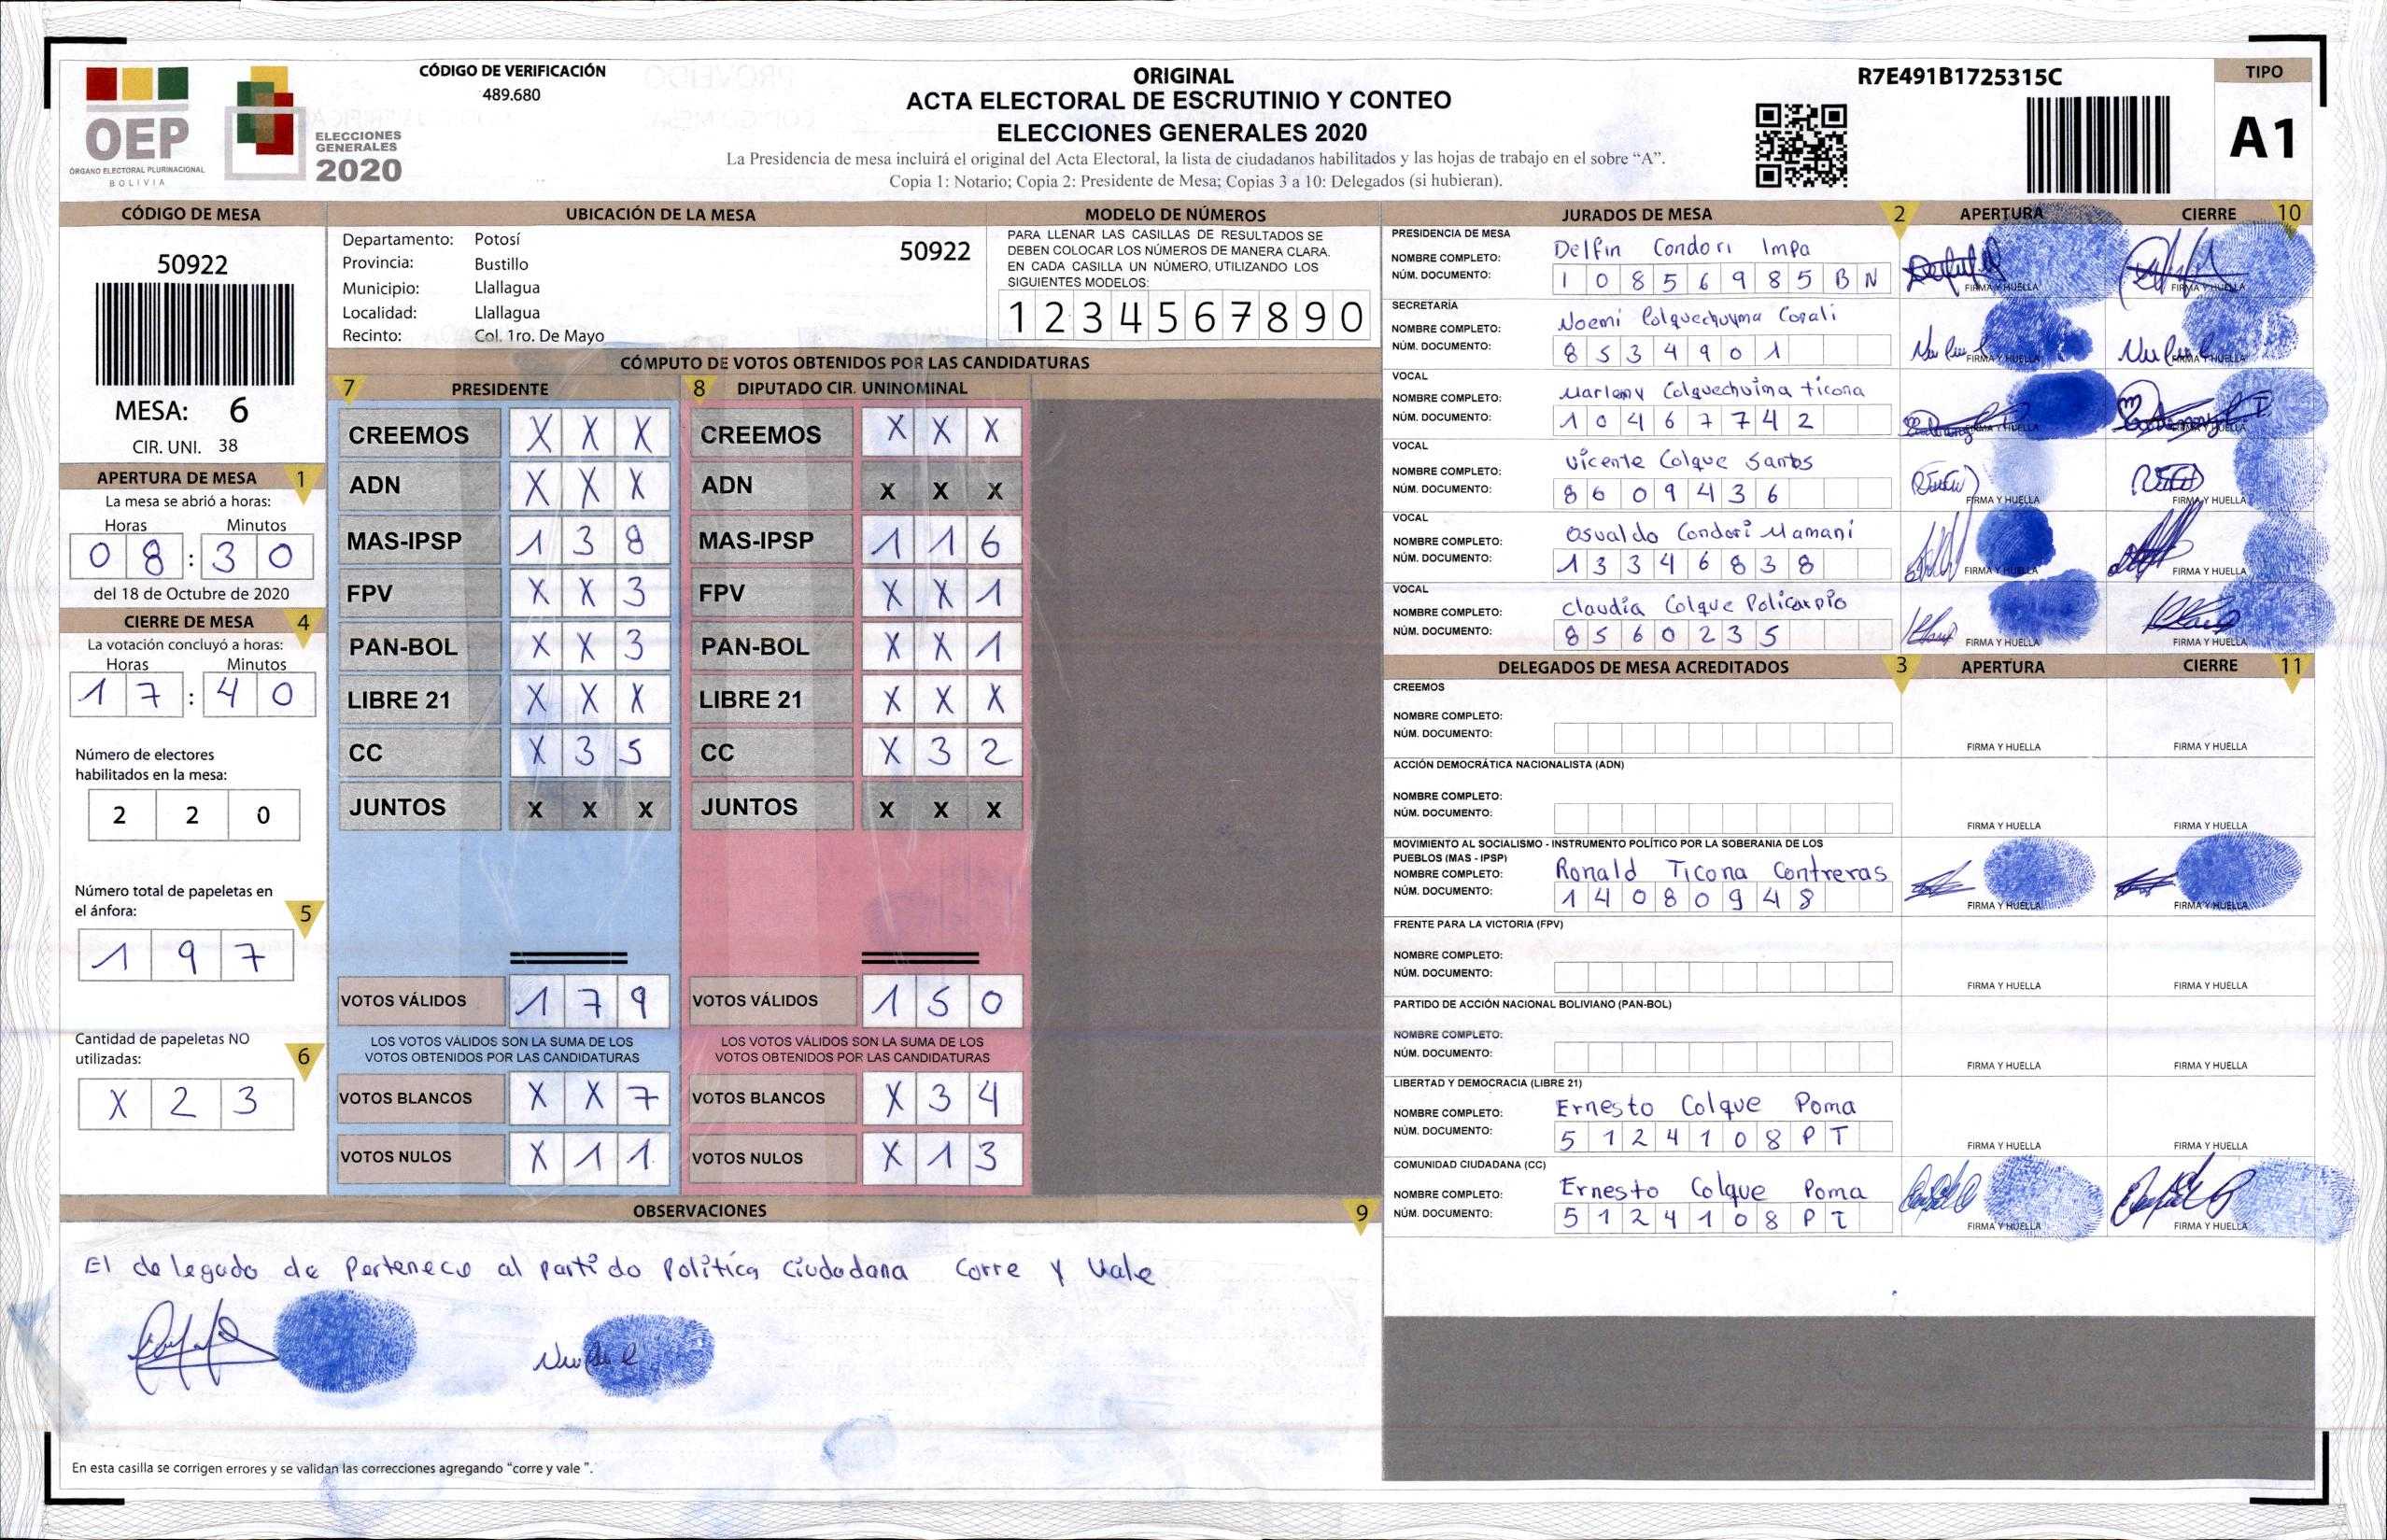 OEP
ÓRGANO ELECTORAL PLURINACIONAL
BOLIVIA
ELECCIONES
GENERALES
2020
CÓDIGO DE VERIFICACIÓN
489.680
ORIGINAL
ACTA ELECTORAL DE ESCRUTINIO Y CONTEO
ELECCIONES GENERALES 2020
La Presidencia de mesa incluirá el original del Acta Electoral, la lista de ciudadanos habilitados y las hojas de trabajo en el sobre “A”.
Copia 1: Notario; Copia 2: Presidente de Mesa; Copias 3 a 10: Delegados (si hubieran).
R7E491B1725315C
TIPO
A1
CÓDIGO DE MESA
50922
MESA: 6
CIR. UNI. 38
APERTURA DE MESA 1
La mesa se abrió a horas:
Horas Minutos
08:30
del 18 de Octubre de 2020
CIERRE DE MESA 4
La votación concluyó a horas:
Horas Minutos
17:40
Número de electores
habilitados en la mesa:
2 2 0
Número total de papeletas en
el ánfora: 5
1 9 7
Cantidad de papeletas NO
utilizadas: 6
X 2 3
UBICACIÓN DE LA MESA
Departamento: Potosí 50922
Provincia: Bustillo
Municipio: Llallagua
Localidad: Llallagua
Recinto: Col. 1ro. De Mayo
MODELO DE NÚMEROS
PARA LLENAR LAS CASILLAS DE RESULTADOS SE
DEBEN COLOCAR LOS NÚMEROS DE MANERA CLARA.
EN CADA CASILLA UN NÚMERO, UTILIZANDO LOS
SIGUIENTES MODELOS:
1 2 3 4 5 6 7 8 9 0
CÓMPUTO DE VOTOS OBTENIDOS POR LAS CANDIDATURAS
7 PRESIDENTE
CREEMOS X X X
ADN X X X
MAS-IPSP 1 3 8
FPV X X 3
PAN-BOL X X 3
LIBRE 21 X X X
CC X 3 5
JUNTOS X X X
VOTOS VÁLIDOS 1 7 9
LOS VOTOS VÁLIDOS SON LA SUMA DE LOS
VOTOS OBTENIDOS POR LAS CANDIDATURAS
VOTOS BLANCOS X X 7
VOTOS NULOS X 1 1
8 DIPUTADO CIR. UNINOMINAL
CREEMOS X X X
ADN X X X
MAS-IPSP 1 1 6
FPV X X 1
PAN-BOL X X 1
LIBRE 21 X X X
CC X 3 2
JUNTOS X X X
VOTOS VÁLIDOS 1 5 0
LOS VOTOS VÁLIDOS SON LA SUMA DE LOS
VOTOS OBTENIDOS POR LAS CANDIDATURAS
VOTOS BLANCOS X 3 4
VOTOS NULOS X 1 3
JURADOS DE MESA 2 APERTURA CIERRE 10
PRESIDENCIA DE MESA
NOMBRE COMPLETO: Delfin Condori Impa
NÚM. DOCUMENTO: 1 0 8 5 6 9 8 5 B N
FIRMA Y HUELLA FIRMA Y HUELLA
SECRETARÍA
NOMBRE COMPLETO: Noemi Colquechuyma Corali
NÚM. DOCUMENTO: 8 5 3 4 9 0 1
FIRMA Y HUELLA FIRMA Y HUELLA
VOCAL
NOMBRE COMPLETO: Marleny Colquechuima ticona
NÚM. DOCUMENTO: 1 0 4 6 7 7 4 2
FIRMA Y HUELLA FIRMA Y HUELLA
VOCAL
NOMBRE COMPLETO: Vicente Colque Santos
NÚM. DOCUMENTO: 8 6 0 9 4 3 6
FIRMA Y HUELLA FIRMA Y HUELLA
VOCAL
NOMBRE COMPLETO: Osvaldo Condori Mamani
NÚM. DOCUMENTO: 1 3 3 4 6 8 3 8
FIRMA Y HUELLA FIRMA Y HUELLA
VOCAL
NOMBRE COMPLETO: Claudia Colque Policarpio
NÚM. DOCUMENTO: 8 5 6 0 2 3 5
FIRMA Y HUELLA FIRMA Y HUELLA
DELEGADOS DE MESA ACREDITADOS 3 APERTURA CIERRE 11
CREEMOS
NOMBRE COMPLETO:
NÚM. DOCUMENTO:
FIRMA Y HUELLA FIRMA Y HUELLA
ACCIÓN DEMOCRÁTICA NACIONALISTA (ADN)
NOMBRE COMPLETO:
NÚM. DOCUMENTO:
FIRMA Y HUELLA FIRMA Y HUELLA
MOVIMIENTO AL SOCIALISMO - INSTRUMENTO POLÍTICO POR LA SOBERANIA DE LOS
PUEBLOS (MAS - IPSP)
NOMBRE COMPLETO: Ronald Ticona Contreras
NÚM. DOCUMENTO: 1 4 0 8 0 9 4 8
FIRMA Y HUELLA FIRMA Y HUELLA
FRENTE PARA LA VICTORIA (FPV)
NOMBRE COMPLETO:
NÚM. DOCUMENTO:
FIRMA Y HUELLA FIRMA Y HUELLA
PARTIDO DE ACCIÓN NACIONAL BOLIVIANO (PAN-BOL)
NOMBRE COMPLETO:
NÚM. DOCUMENTO:
FIRMA Y HUELLA FIRMA Y HUELLA
LIBERTAD Y DEMOCRACIA (LIBRE 21)
NOMBRE COMPLETO: Ernesto Colque Poma
NÚM. DOCUMENTO: 5 1 2 4 1 0 8 P T
FIRMA Y HUELLA FIRMA Y HUELLA
COMUNIDAD CIUDADANA (CC)
NOMBRE COMPLETO: Ernesto Colque Poma
NÚM. DOCUMENTO: 5 1 2 4 1 0 8 P T
FIRMA Y HUELLA FIRMA Y HUELLA
OBSERVACIONES 9
El delegado de Pertenece al partido Política Ciudadana Corre y Vale
En esta casilla se corrigen errores y se validan las correcciones agregando “corre y vale ”.